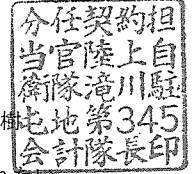 分任契約担
当官陸上自
衛隊滝川駐
樹
屯地第345
会計隊長印